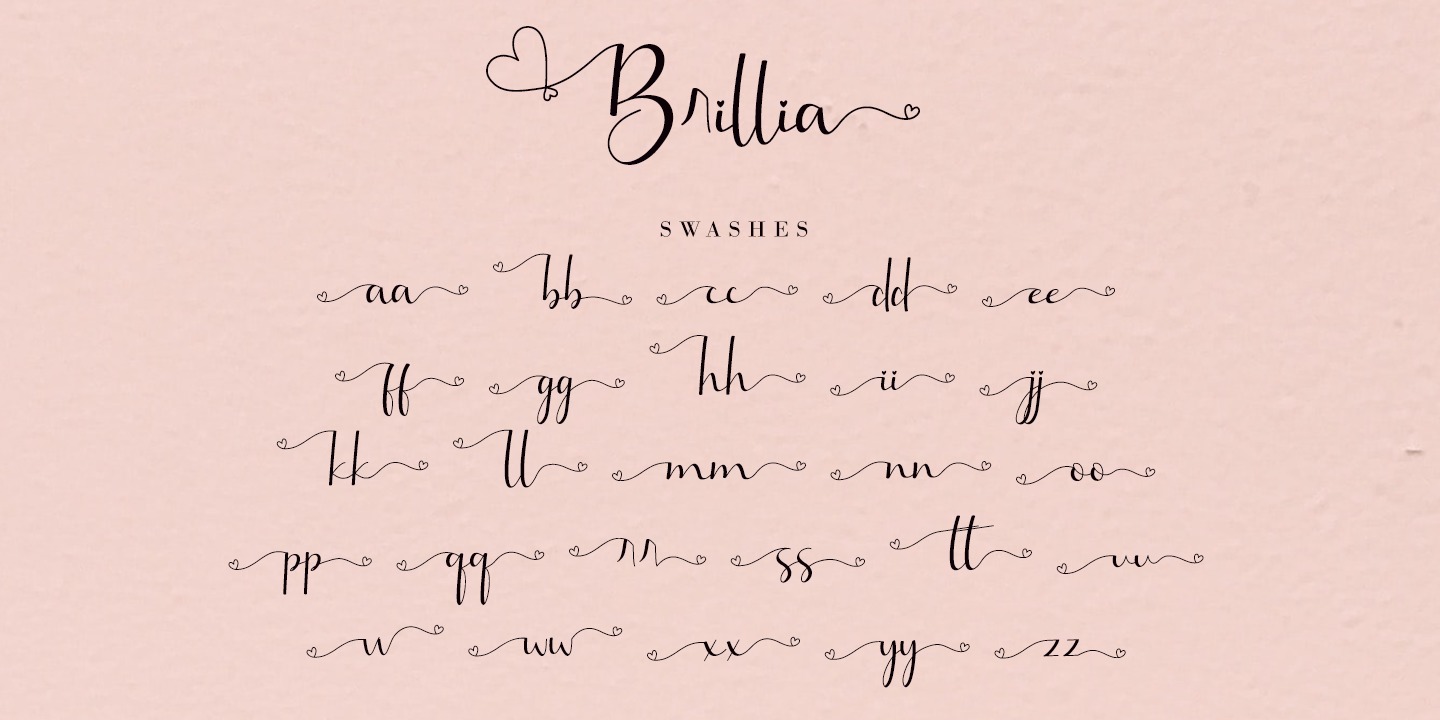 Brillia
SWASHES
aa bb cc dd ee
ff gg hh ii jj
kk ll mm nn oo
pp qq rr ss tt uu
vv ww xx yy zz